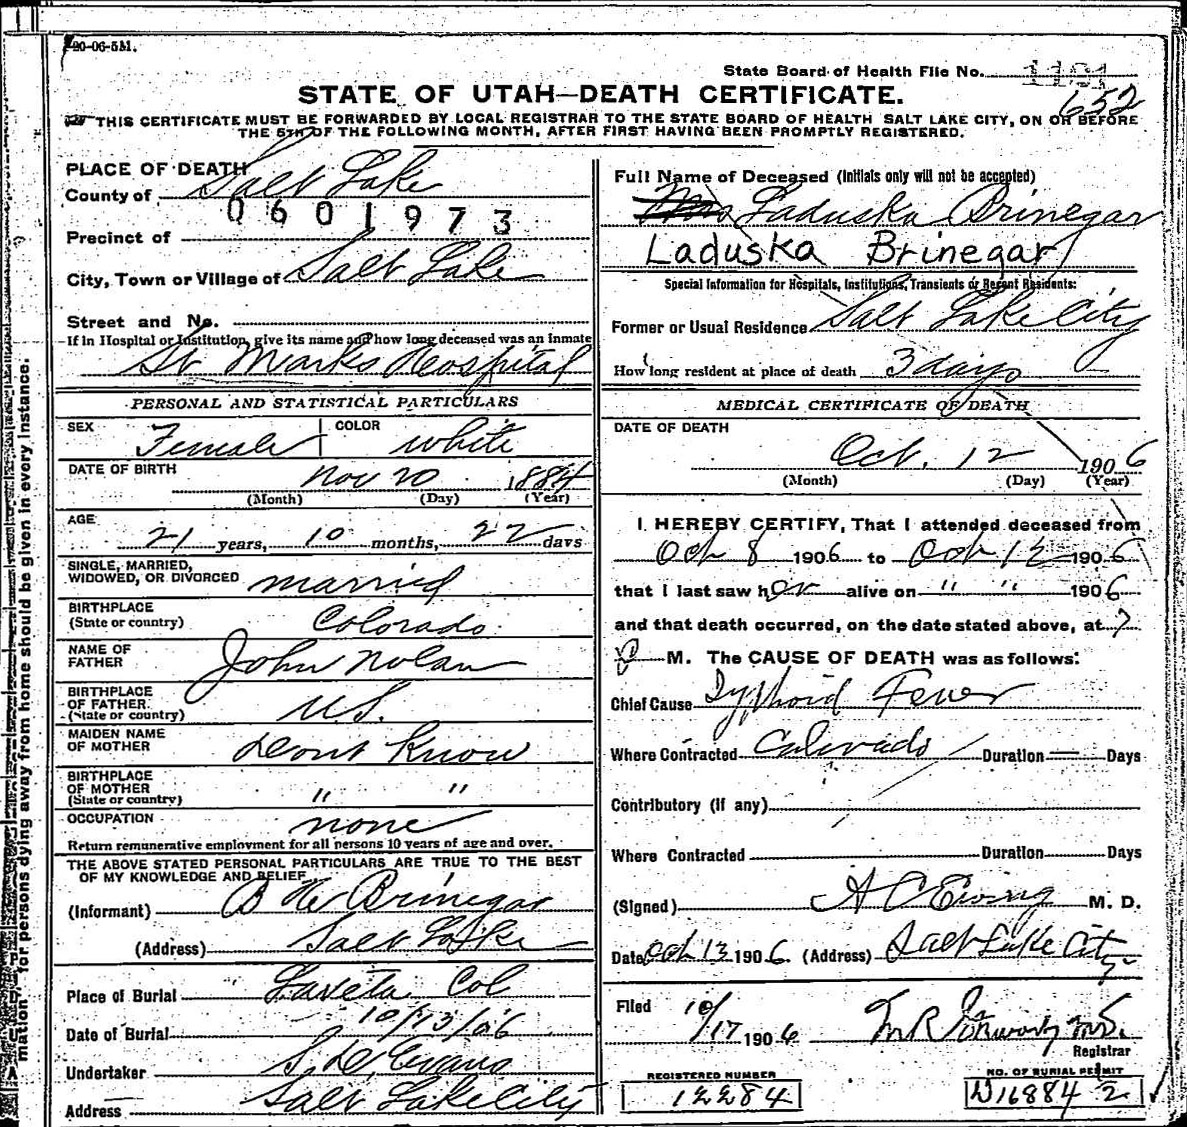 20-06-5M.
State Board of Health File No. 1101
652
STATE OF UTAH—DEATH CERTIFICATE.
THIS CERTIFICATE MUST BE FORWARDED BY LOCAL REGISTRAR TO THE STATE BOARD OF HEALTH SALT LAKE CITY, ON OR BEFORE
THE 5TH OF THE FOLLOWING MONTH, AFTER FIRST HAVING BEEN PROMPTLY REGISTERED.
PLACE OF DEATH
County of Salt Lake
0601973
Precinct of
City, Town or Village of Salt Lake
Street and No.
If in Hospital or Institution, give its name and how long deceased was an inmate
St Marks Hospital
PERSONAL AND STATISTICAL PARTICULARS
SEX Female COLOR white
DATE OF BIRTH Nov 20 1884
(Month) (Day) (Year)
AGE
21 years, 10 months, 22 days
SINGLE, MARRIED,
WIDOWED, OR DIVORCED married
BIRTHPLACE
(State or country) Colorado
NAME OF
FATHER John Nolan
BIRTHPLACE
OF FATHER.
(State or country) U.S.
MAIDEN NAME
OF MOTHER dont know
BIRTHPLACE
OF MOTHER
(State or country) " "
OCCUPATION none
Return remunerative employment for all persons 10 years of age and over.
THE ABOVE STATED PERSONAL PARTICULARS ARE TRUE TO THE BEST
OF MY KNOWLEDGE AND BELIEF
(Informant) B W Brinegar
(Address) Salt Lake
Place of Burial Laveta Col
Date of Burial 10/13/06
Undertaker S. D. Evans
Address Salt Lake City
Full Name of Deceased (Initials only will not be accepted)
Mrs Laduska Brinegar
Laduska Brinegar
Special Information for Hospitals, Institutions, Transients or Recent Residents:
Former or Usual Residence Salt Lake City
How long resident at place of death 3 days
MEDICAL CERTIFICATE OF DEATH
DATE OF DEATH
Oct. 12 1906
(Month) (Day) (Year)
I HEREBY CERTIFY, That I attended deceased from
Oct 8 1906 to Oct 12 1906
that I last saw her alive on " " 1906
and that death occurred, on the date stated above, at 7
P M. The CAUSE OF DEATH was as follows:
Chief Cause Typhoid Fever
Where Contracted Colorado Duration — Days
Contributory (if any)
Where Contracted Duration Days
(Signed) A C Ewing M. D.
Date Oct 13 1906. (Address) Salt Lake City
Filed 10/17 1906
Registrar
REGISTERED NUMBER
12284
NO. OF BURIAL PERMIT
D16884 2
mation for persons dying away from home should be given in every instance.